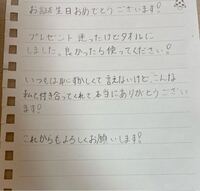 お誕生日おめでとうございます!
プレゼント迷ったけどタオルに
しました。良かったら使ってください!
いつもは恥ずかしくて言えないけど、こんな
私と付き合ってくれて本当にありがとうござい
ます!
これからもよろしくお願いします!